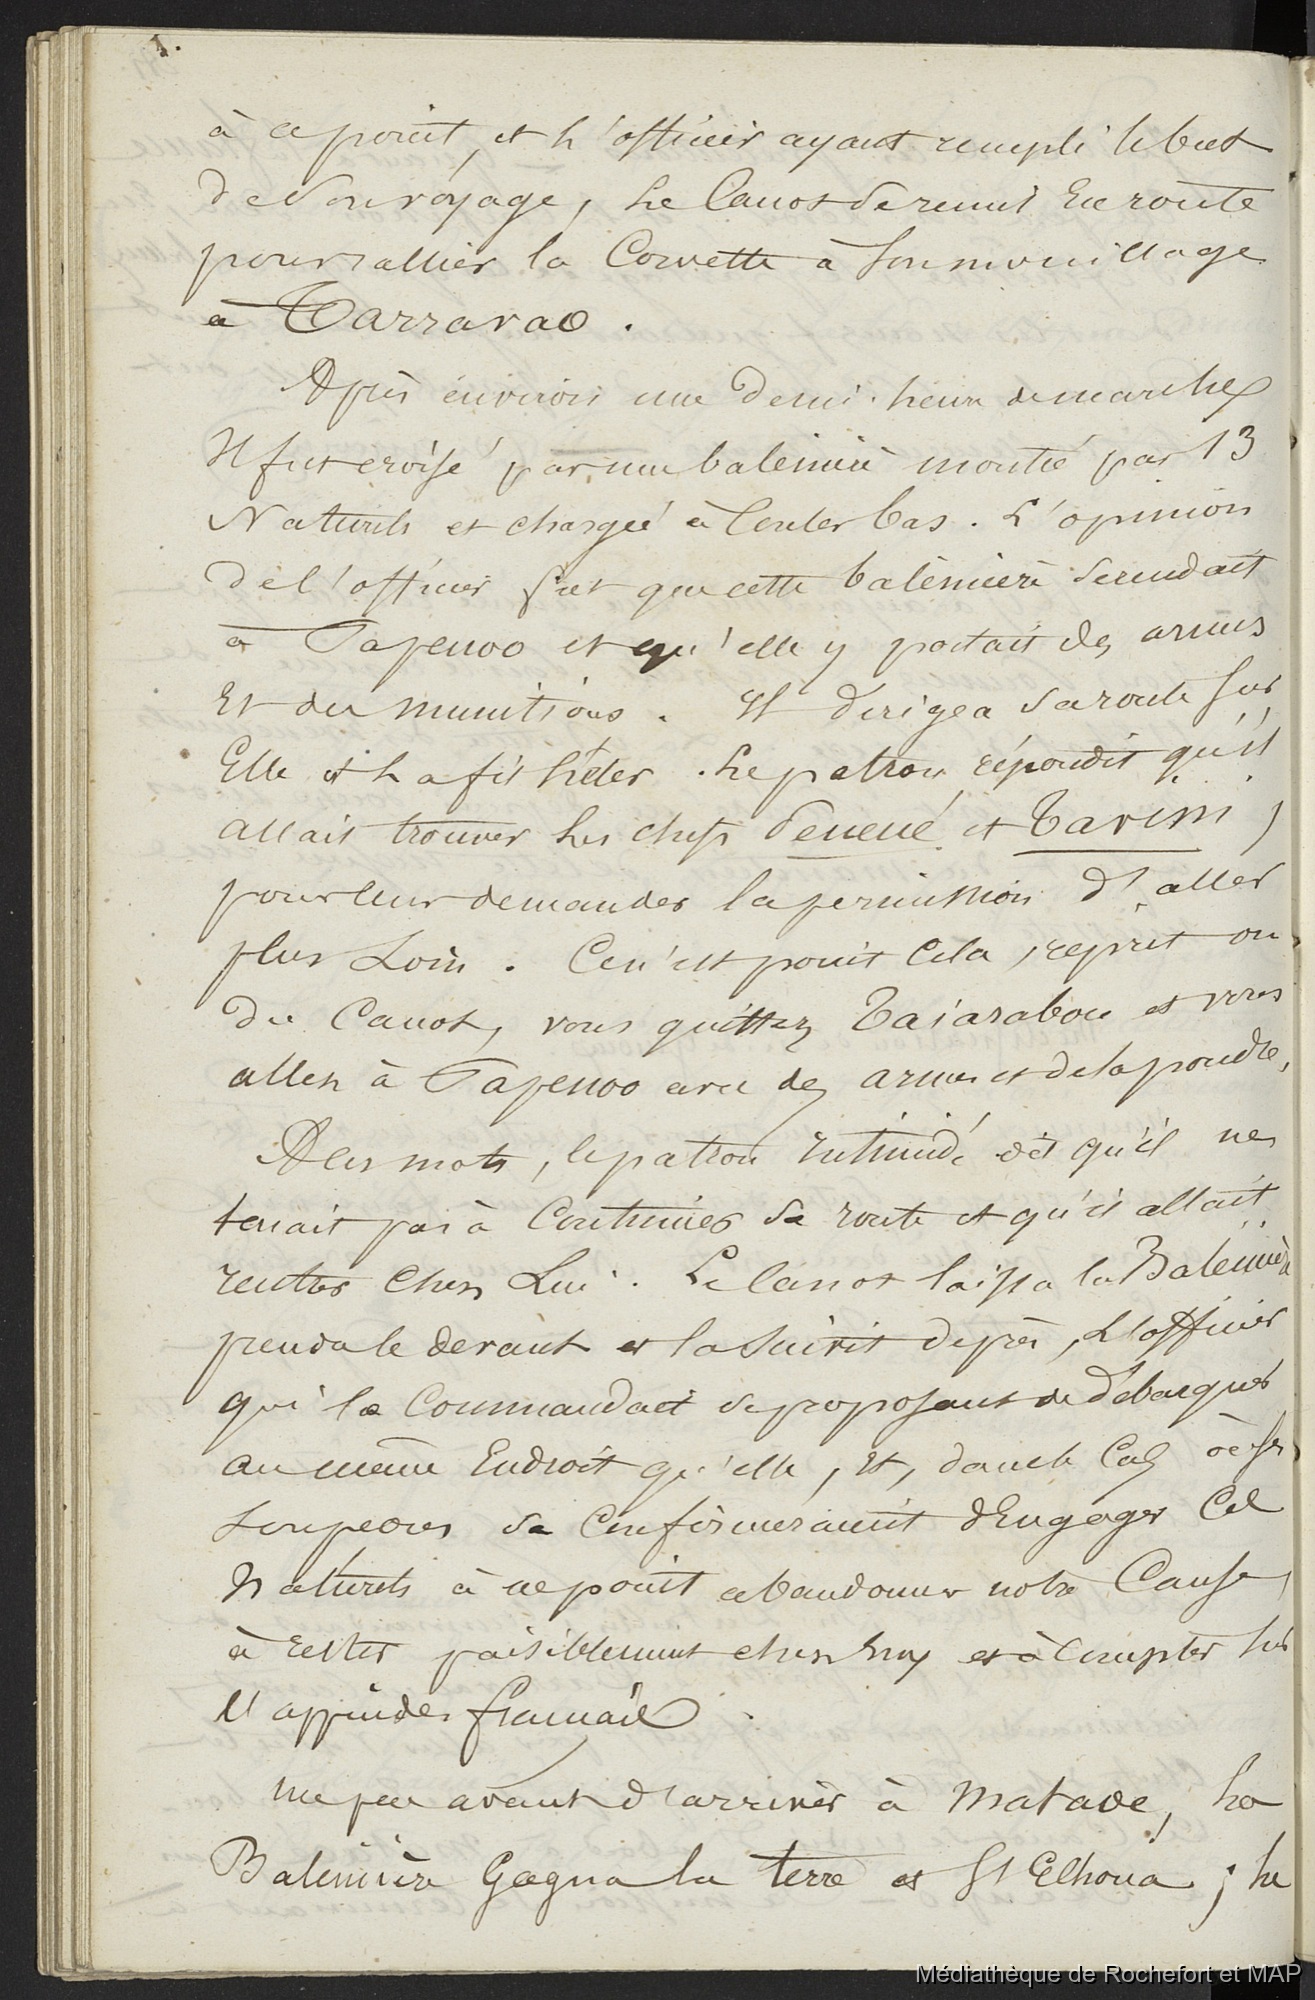 1.
à ce point, et l'officier ayant rempli le but
de son voyage, le Canot se remit En route
pour rallier la Corvette à son mouillage
à Tarravao.
Après environ une demi-heure de marche
Il fut croisé par une baleinière monté par 13
Naturels et chargée à Couler bas. L'opinion
de l'officier fut que cette baleinière se rendait
à Papenoo et qu'elle y portait des armes
Et des munitions. Il dirigea sa route sur
Elle et la fit héler. Le patron répondit qu'il
allait trouver les chefs et Tavini,
pour leur demander la permission d'aller
plus Loin. Ce n'est point Cela, reprit on
du Canot, vous quittez Taiarabou et vous
allez à Papenoo avec des armes et de la poudre,
A ces mots, le patron intimidé dit qu'il ne
tenait pas à Continuer sa route et qu'il allait
rentrer Chez Lui. Le Canot laissa la Baleinière
prendre le devant et la suivit de près, L'officier
qui le Commandait se proposant de débarquer
au même Endroit qu'elle, Et, dans le Cas où ses
soupçons se Confirmeraient d'Engager Ces
Naturels à ne point abandonner notre Cause,
à rester paisiblement chez Eux et à Compter sur
l'appui des français.
un peu avant d'arriver à Matavae, la
Baleinière Gagna la terre et s'y Echoua ; le
Médiathèque de Rochefort et MAP